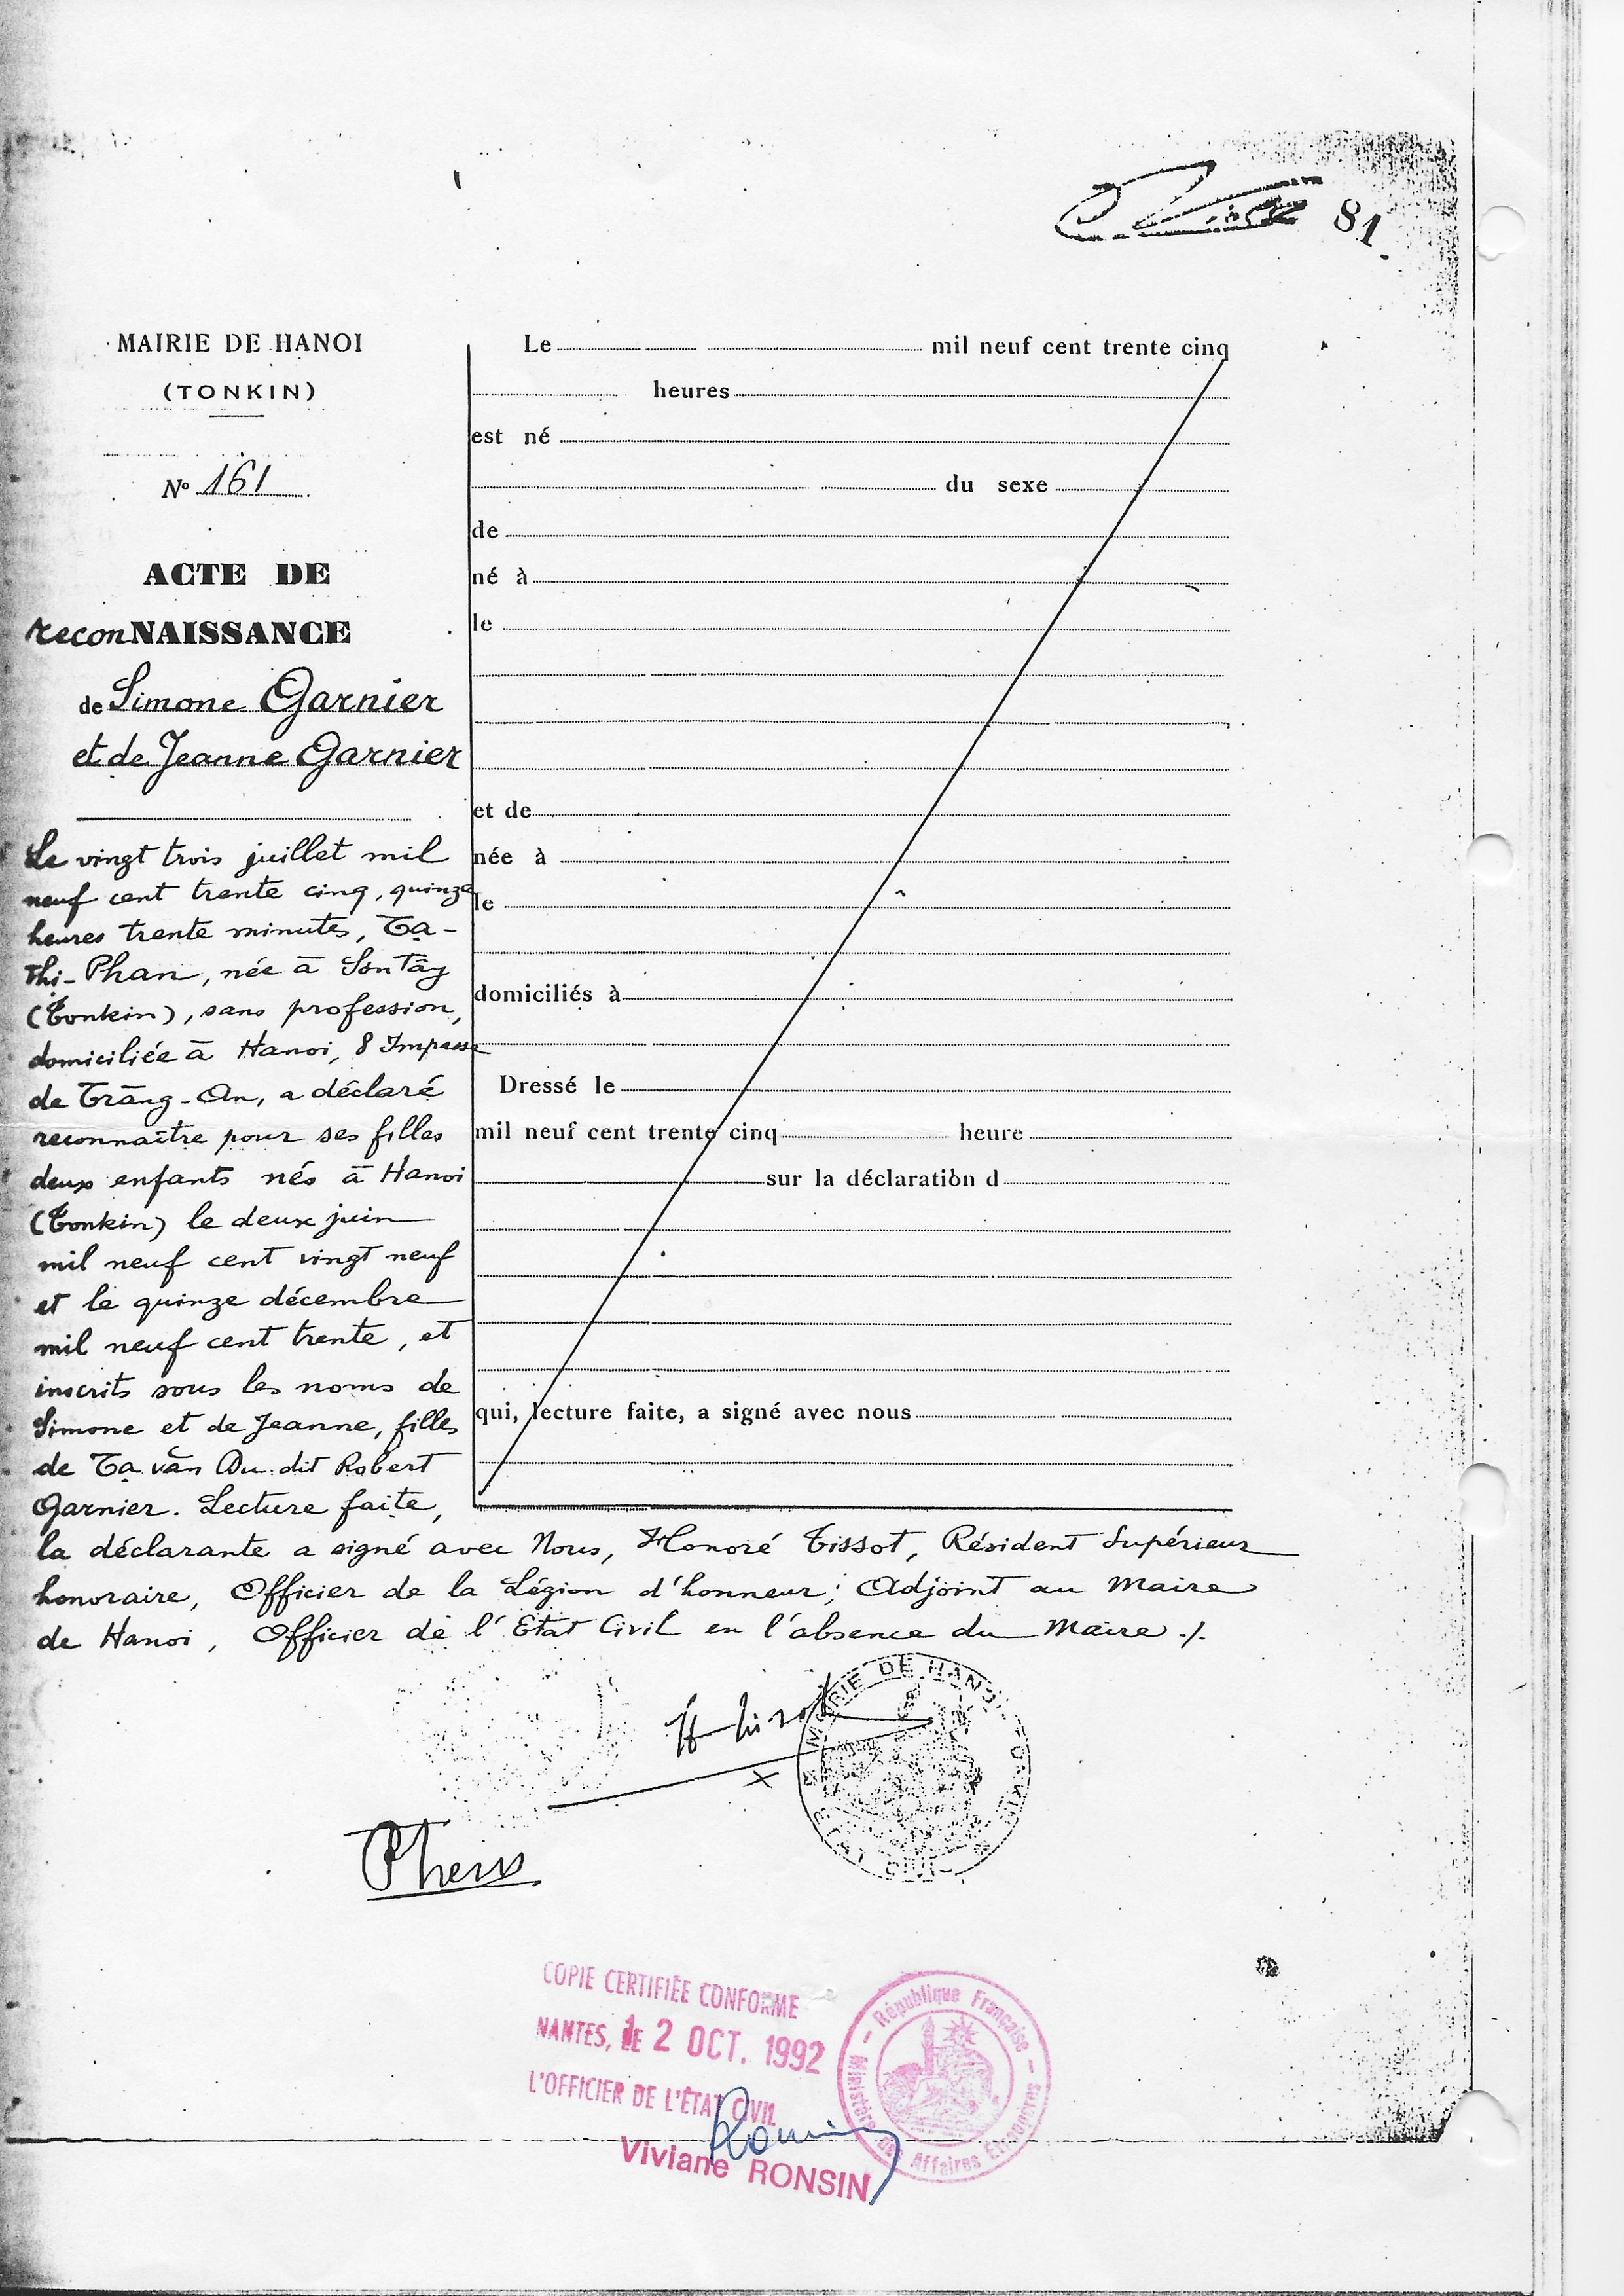 81
MAIRIE DE HANOI
(TONKIN)
N° 161
ACTE DE
reconNAISSANCE
de Simone Garnier
et de Jeanne Garnier
Le vingt trois juillet mil
neuf cent trente cinq, quinze
heures trente minutes, Tạ-
Thi-Phan, née à Sontây
(Tonkin), sans profession,
domiciliée à Hanoi, 8 Impasse
de Trang-An, a déclaré
reconnaître pour ses filles
deux enfants nés à Hanoi
(Tonkin) le deux juin
mil neuf cent vingt neuf
et le quinze décembre
mil neuf cent trente, et
inscrits sous les noms de
Simone et de Jeanne, filles
de Tạ văn Du dit Robert
Garnier. Lecture faite,
la déclarante a signé avec Nous, Honoré Tissot, Résident Supérieur
honoraire, Officier de la Légion d'honneur; Adjoint au Maire
de Hanoi, Officier de l'Etat Civil en l'absence du Maire ./.
Le mil neuf cent trente cinq
heures
est né
du sexe
de
né à
le
et de
née à
le
domiciliés à
Dressé le
mil neuf cent trente cinq heure
sur la déclaration d
qui, lecture faite, a signé avec nous
MAIRIE DE HANOI TONKIN
ETAT CIVIL
COPIE CERTIFIÉE CONFORME
NANTES, LE 2 OCT. 1992
L'OFFICIER DE L'ÉTAT CIVIL
Viviane RONSIN
République Française
Ministère des Affaires Etrangères